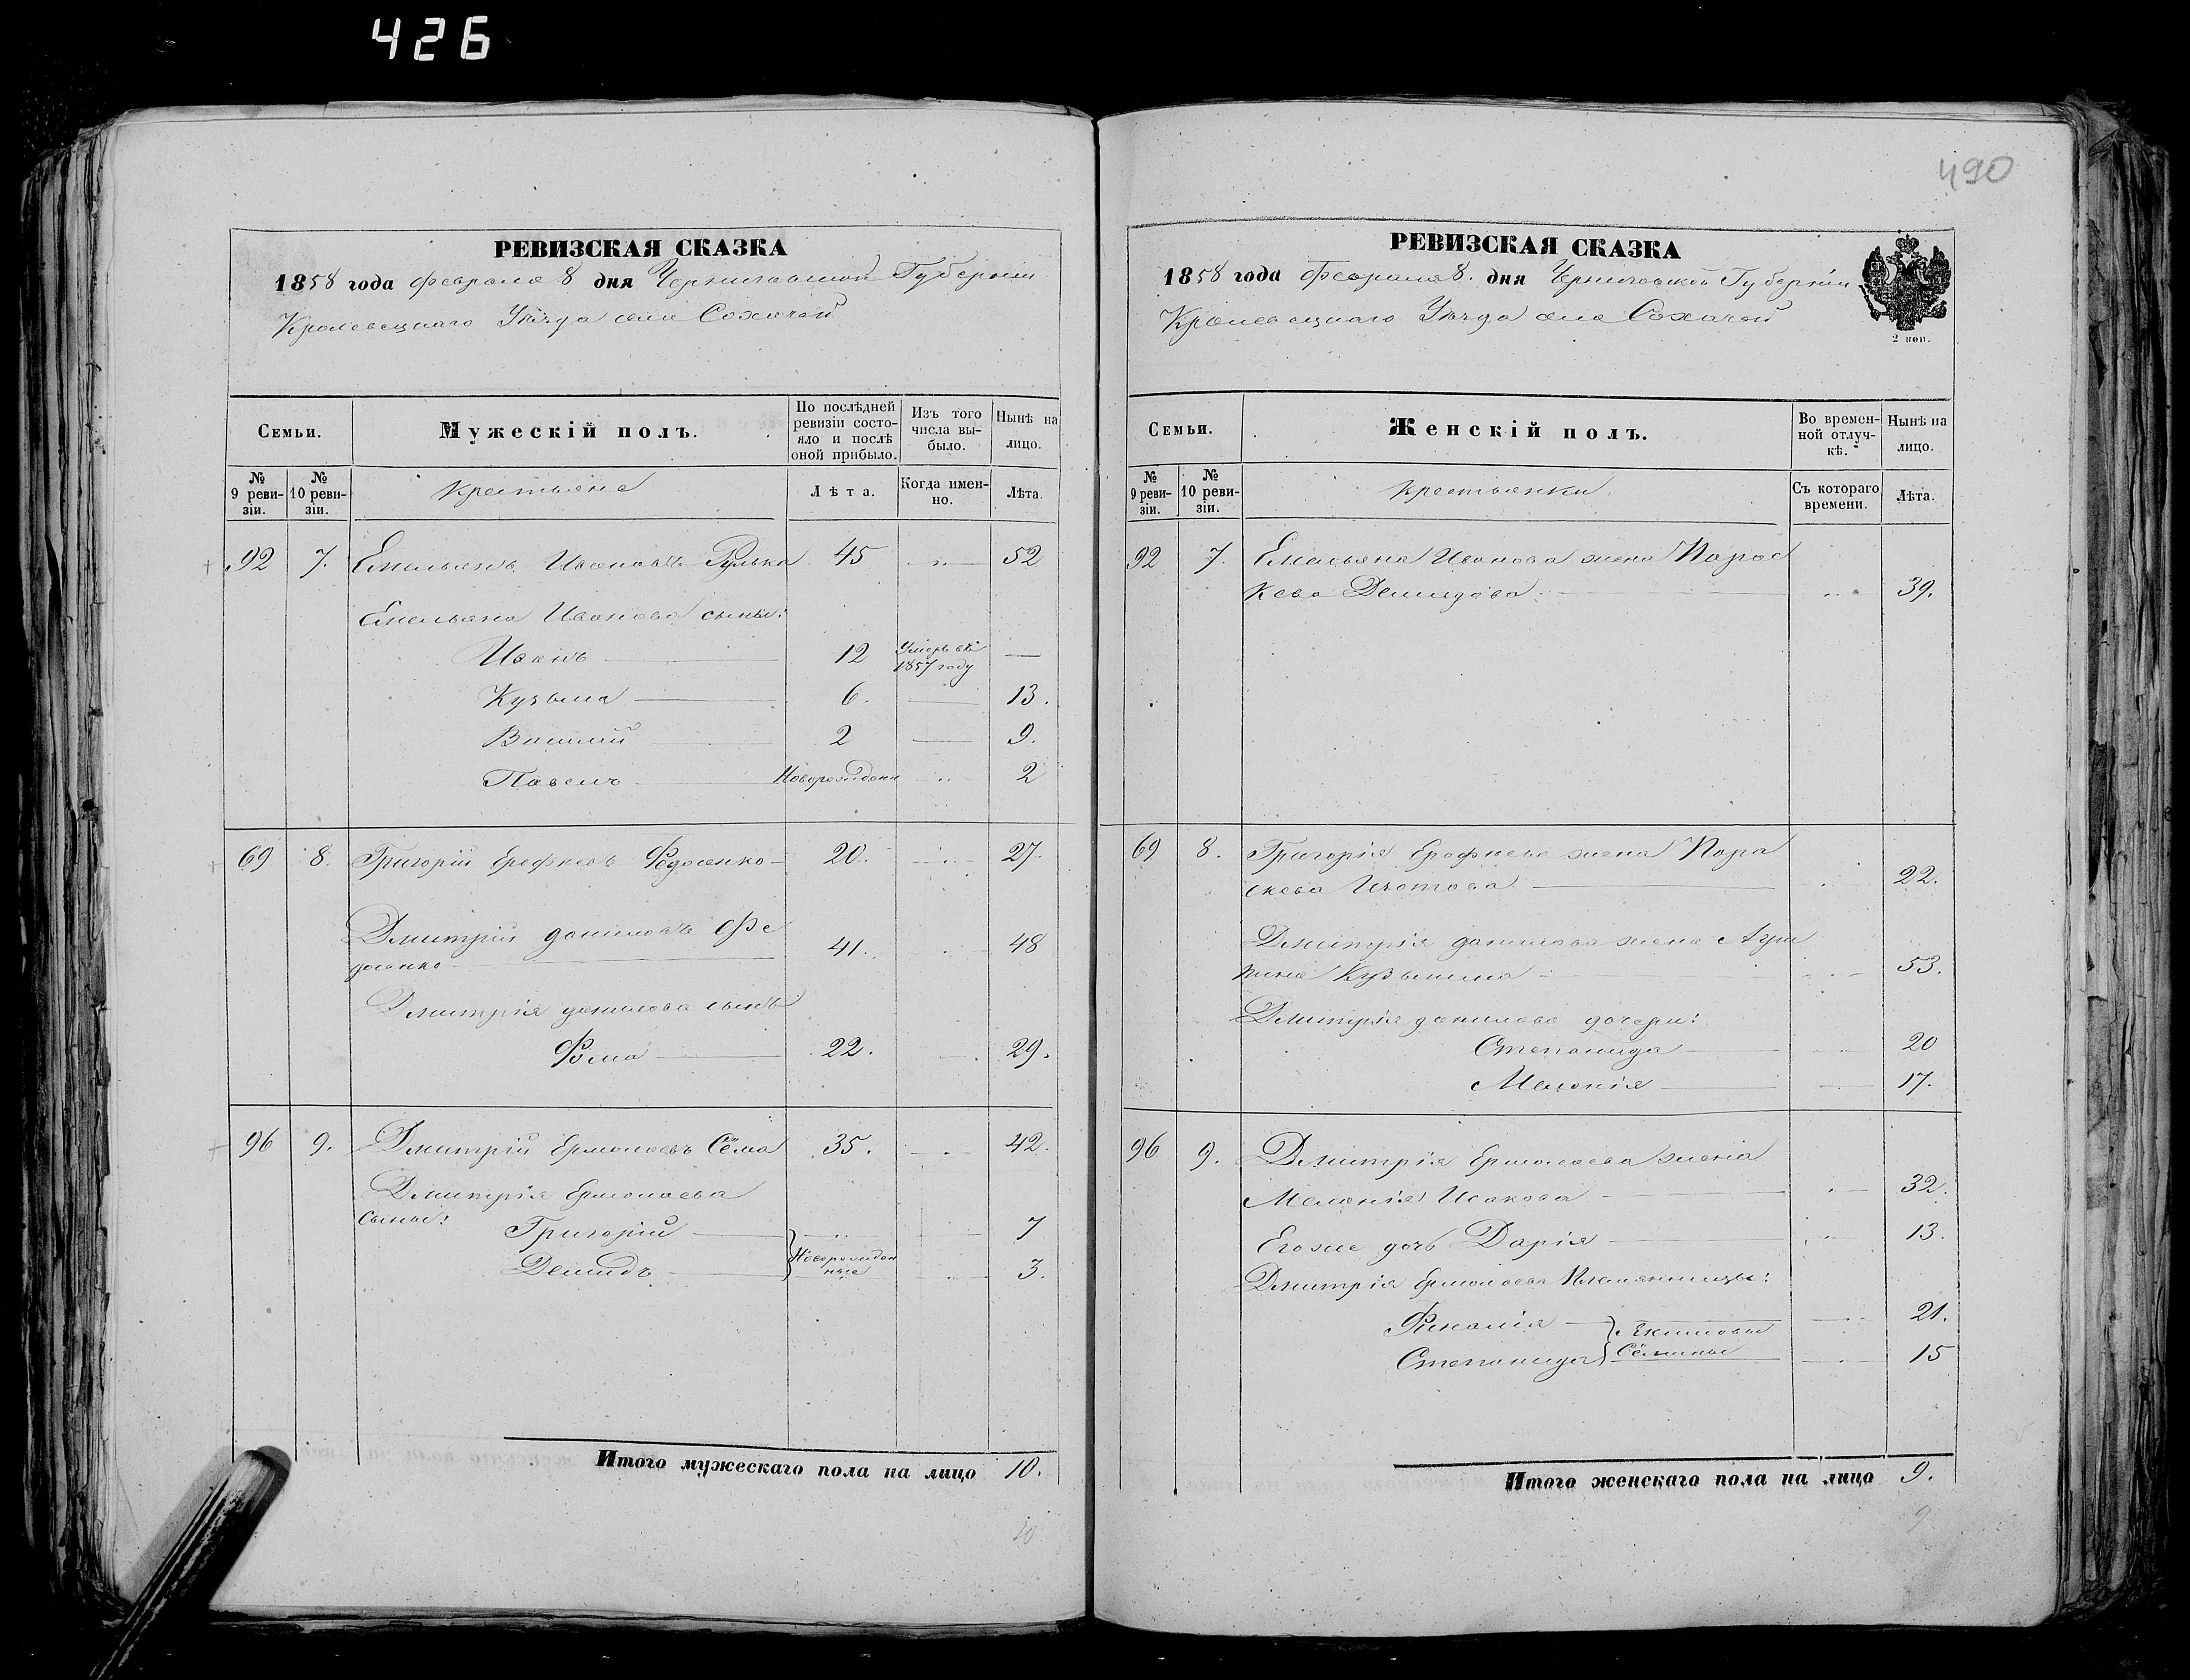 426
490
РЕВИЗСКАЯ СКАЗКА
1858 года Февраля 8 дня Черниговской Губерніи
Кролевецкаго Уѣзда села Сохачей
Семьи.
Мужескій полъ.
По послѣдней ревизіи состояло и послѣ оной прибыло.
Изъ того числа выбыло.
Нынѣ на лицо.
№ 9 ревизіи.
№ 10 ревизіи.
Крестьяне
Лѣта.
Когда именно.
Лѣта.
92 7. Емельянъ Ивановъ Рулька 45 52
Емельяна Иванова сыны:
Иванъ 12 Умеръ въ 1857 году —
Кузьма 6. 13.
Василій 2 9.
Павелъ Новорожденн 2
69 8. Григорій Ерофеевъ Федосенко 20. 27
Дмитрій Даниловъ Фе
досенко 41. 48
Дмитрія Данилова сынъ
Фома 22. 29.
96 9. Дмитрій Ермолаевъ Сёма 35. 42.
Дмитрія Ермолаева
сыны:
Григорій 7
Демидъ Новорожденные 3.
Итого мужескаго пола на лицо 10.
10
РЕВИЗСКАЯ СКАЗКА
1858 года Февраля 8. дня Черниговской Губерніи
Кролевецкаго Уѣзда села Сохачей
2 коп.
Семьи.
Женскій полъ.
Во временной отлучкѣ.
Нынѣ на лицо.
№ 9 ревизіи.
№ 10 ревизіи.
Крестьянки
Съ котораго времени.
Лѣта.
92 7. Емельяна Иванова жена Парас
кева Демидова 39.
69 8. Григорія Ерофеева жена Пара
скева Изотова 22.
Дмитрія Данилова жена Агри
пина Кузьмина 53.
Дмитрія Данилова дочери:
Степанида 20
Меланія 17.
96 9. Дмитрія Ермолаева жена
Меланія Исакова 32.
Егоже дочь Дарія 13.
Дмитрія Ермолаева Племянницы:
21.
Степанида Сёмины 15
Итого женскаго пола на лицо 9.
9